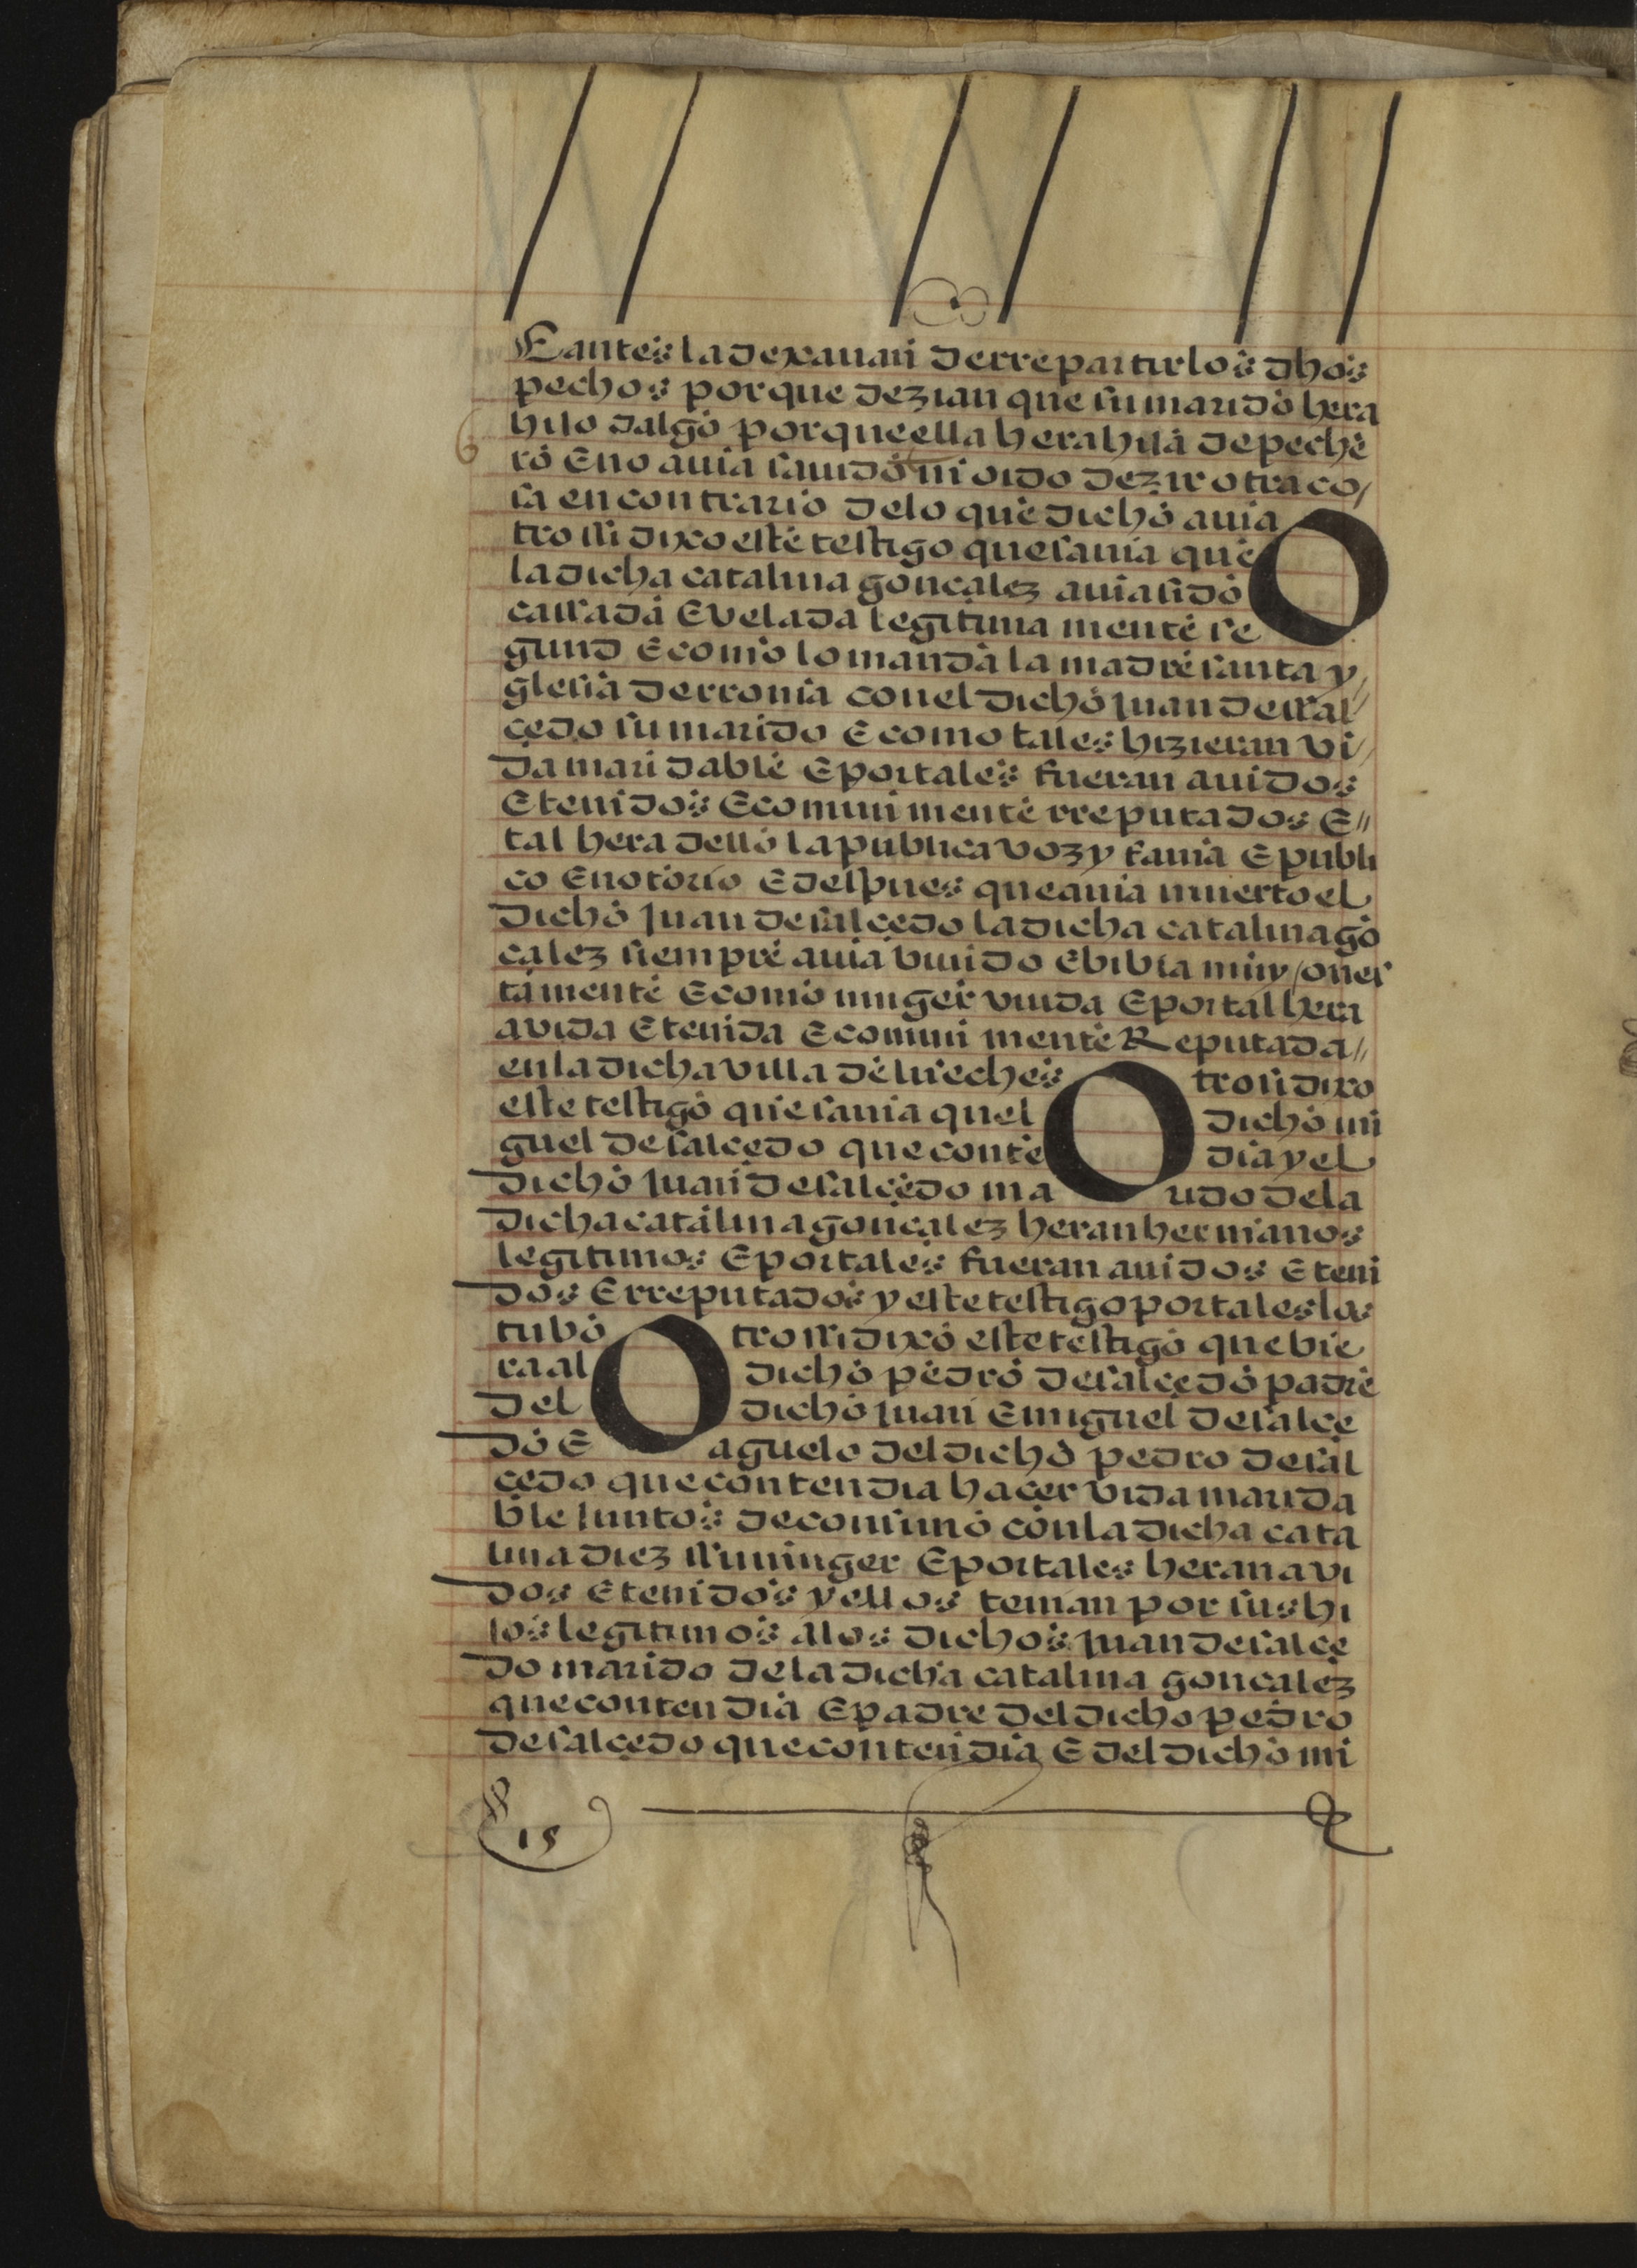 E antes la dexauan de rrepartir los dhos
pechos por que dezian que su marido hera
hijo dalgo por que ella hera hija de peche
6
ro E no auia sauido ni oido dezir otra co/
sa en contrario de lo que dicho auia O
trosi dixo este testigo que sauia que
la dicha catalina gonçalez auia sido
cassada E velada legitima mente se
gund E como lo manda la madre santa y/
glesia de rroma con el dicho juan de ssal//
çedo su marido E como tales hizieran vi/
da mari dable E por tales fueran auidos
E tenidos E comun mente rreputados E//
tal hera dello la publica voz y fama E publi
co E notorio E despues que auia muerto el
dicho juan de salçedo la dicha catalina gō
çalez siempre auia biuido E bibia muy ones
ta mente E como muger viuda E por tal hera
avida E tenida E comun mente Reputada//
en la dicha villa de lueches O trosi dixo
este testigo que sauia quel dicho mi
guel de salçedo que conte dia y el
dicho juan de salçedo ma rido de la
dicha catalina gonçalez heran hermanos
legitimos E por tales fueran auidos E teni
dos E rreputados y este testigo por tales los
tubo O trossi dixo este testigo que bie
ra al dicho pedro de salçedo padre
del dicho juan E miguel de salçe
do E aguelo del dicho pedro de sal
çedo que contendia haçer vida marida
ble juntos de consuno con la dicha cata
lina diez ssu muger E por tales heran avi
dos E tenidos y ellos tenian por sus hi
jos legitimos a los dichos juan de salçe
do marido de la dicha catalina gonçalez
que contendia E padre del dicho pedro
de salçedo que contendia E del dicho mi
15